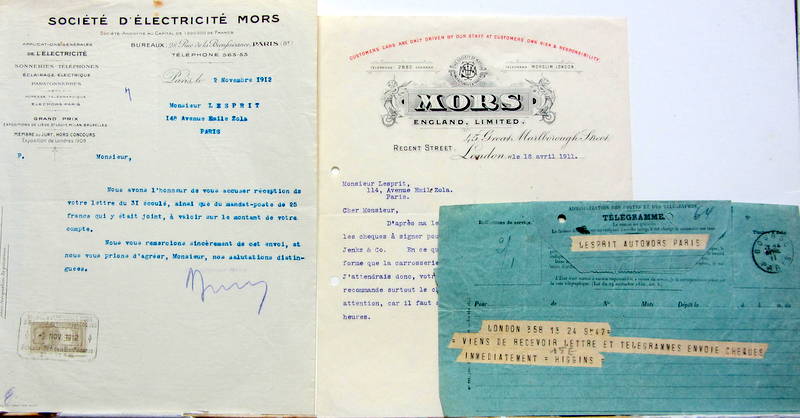 SOCIÉTÉ D'ÉLECTRICITÉ MORS
SOCIÉTÉ ANONYME AU CAPITAL DE FRANCS
BUREAUX: 28, Rue de la Bienfaisance, PARIS (8e)
TÉLÉPHONE 563-53
APPLICATIONS GÉNÉRALES
DE L'ÉLECTRICITÉ
SONNERIES-TÉLÉPHONES
ÉCLAIRAGE ÉLECTRIQUE
PARATONNERRES
ADRESSE TÉLÉGRAPHIQUE
ÉLECMORS-PARIS
GRAND PRIX
EXPOSITIONS DE LIÈGE, ST LOUIS, MILAN, BRUXELLES
MEMBRE DU JURY, HORS CONCOURS
Exposition de Londres 1908
Paris, le 2 Novembre 1912
Monsieur LESPRIT
148 Avenue Emile Zola
PARIS
P. Monsieur,
Nous avons l'honneur de vous accuser réception de
votre lettre du 31 écoulé, ainsi que du mandat-poste de 25
francs qui y était joint, à valoir sur le montant de votre
compte.
Nous vous remercions sincèrement de cet envoi, et
nous vous prions d'agréer, Monsieur, nos salutations distin-
guées.
-2 NOV 1912
CUSTOMERS CARS ARE ONLY DRIVEN BY OUR STAFF AT CUSTOMERS OWN RISK & RESPONSIBILITY.
MORS
ENGLAND, LIMITED.
45, Great Marlborough Street,
REGENT STREET.
London, le 18 avril 1911.
Monsieur Lesprit,
114, Avenue Emile Zola.
Paris.
Cher Monsieur,
D'après ma le
les chèques à signer pou
Jenks & Co. En ce qu
forme que la carrosseri
J'attendrais donc, votr
recommande surtout le c
attention, car il faut
heures.
ADMINISTRATION DES POSTES ET DES TÉLÉGRAPHES
TÉLÉGRAMME.
64
Indications de service.
LESPRIT AUTOMORS PARIS
Pour
N°
Mots
Dépôt le
LONDON 358 13 24 9H42=
= VIENS DE RECEVOIR LETTRE ET TELEGRAMMES ENVOIE CHEQUES
IMMEDIATEMENT = HIGGINS =